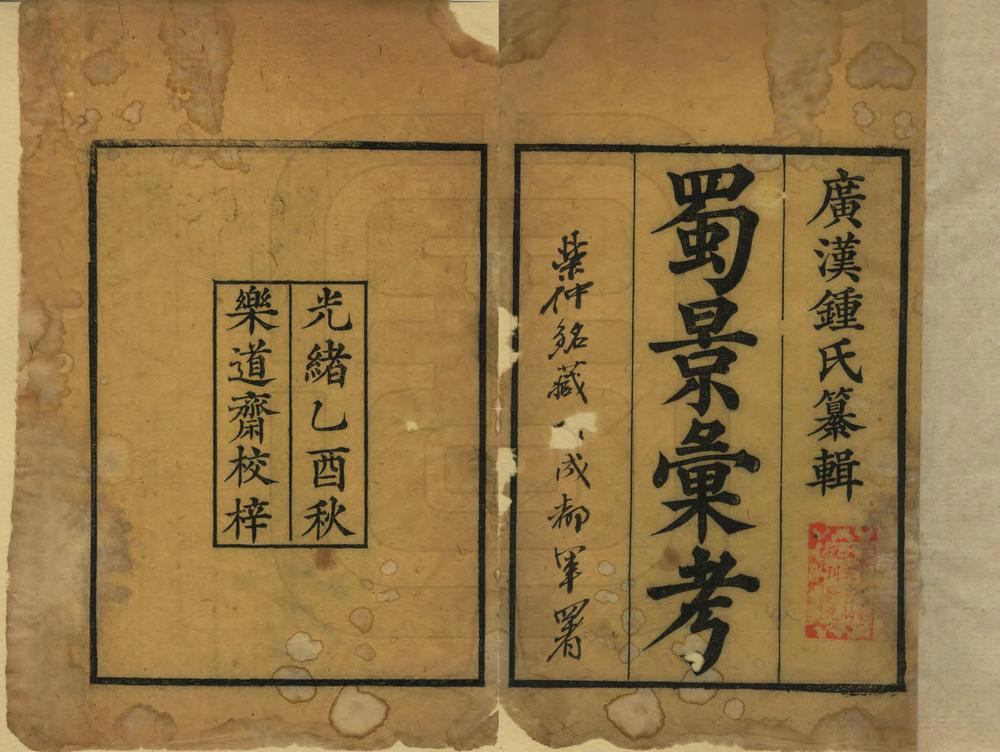 廣漢鍾氏纂輯
蜀景彙考
榮仲銘藏 成都軍署
光緒乙酉秋
樂道齋校梓